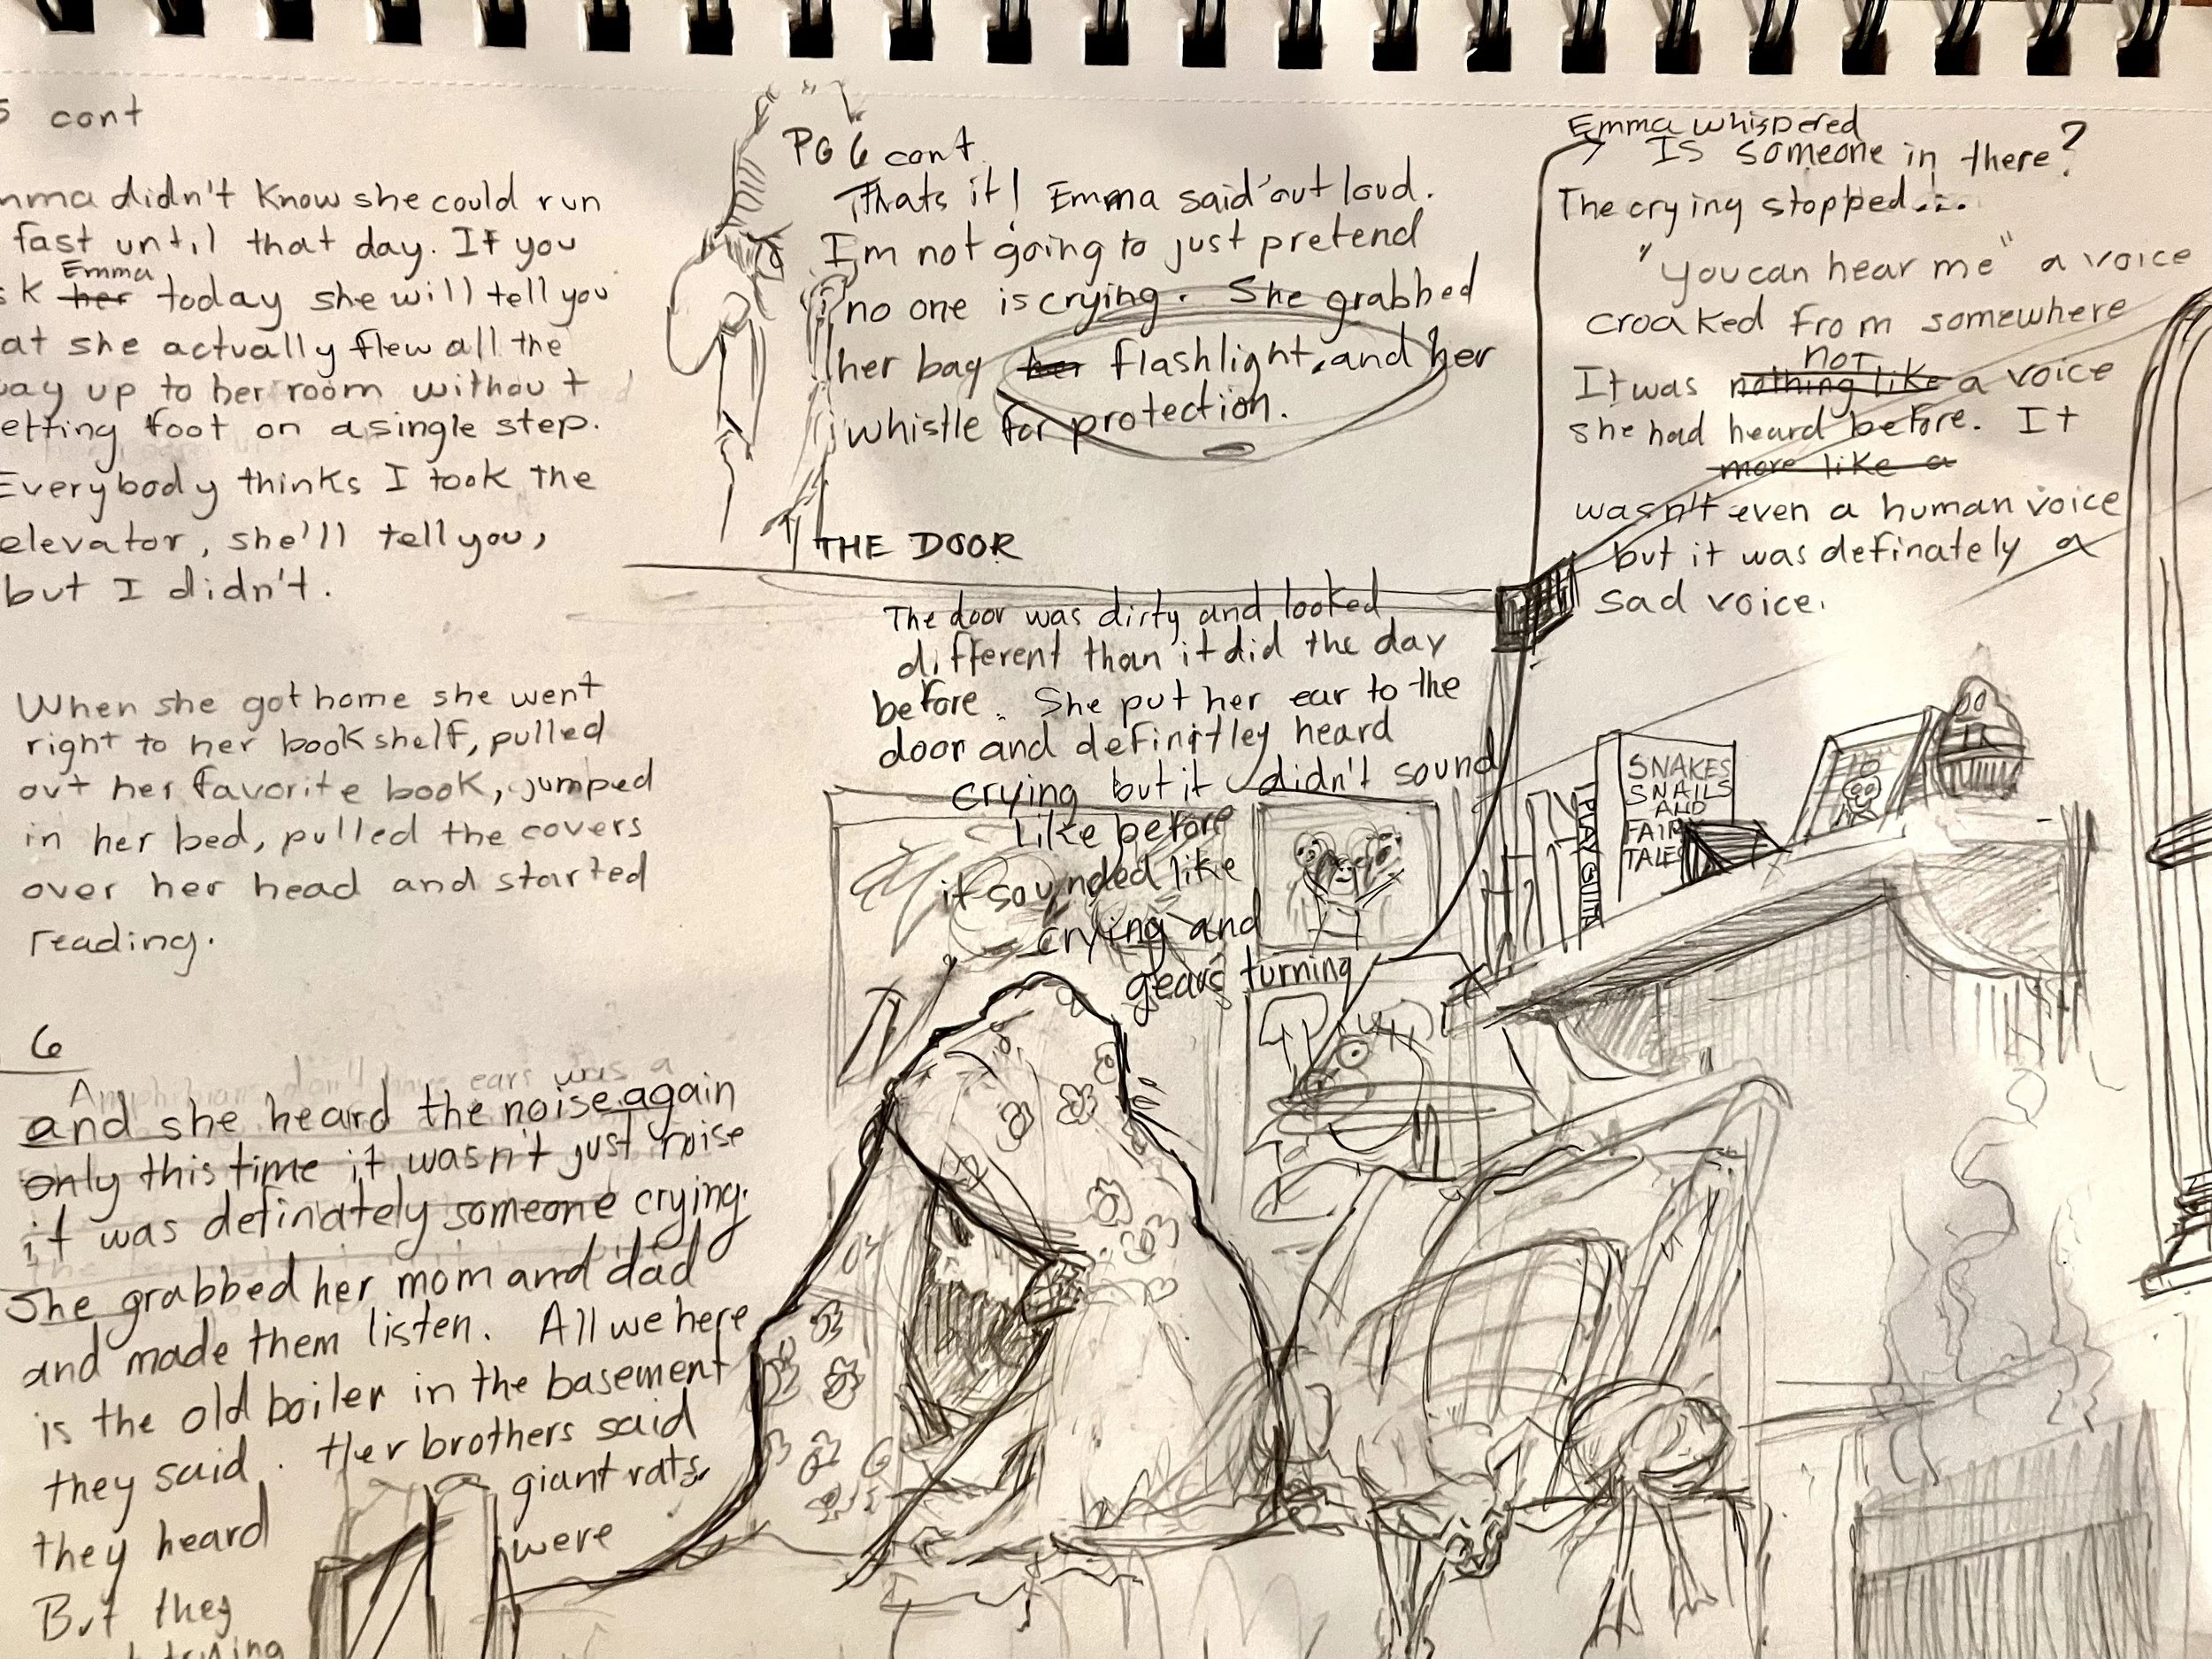 5 cont
mma didn't know she could run
fast until that day. If you
sk her Emma today she will tell you
at she actually flew all the
way up to her room without
etting foot on a single step.
Everybody thinks I took the
elevator, she'll tell you,
but I didn't.
When she got home she went
right to her bookshelf, pulled
out her favorite book, jumped
in her bed, pulled the covers
over her head and started
reading.
6
Amphibians don't have ears was a
and she heard the noise again
only this time it wasn't just noise
it was definately someone crying.
She grabbed her mom and dad
and made them listen. All we here
is the old boiler in the basement
they said. Her brothers said
they heard giant rats
But they were
trying
PG 6 cont
Thats it! Emma said out loud.
I'm not going to just pretend
no one is crying. She grabbed
her bag her flashlight, and her
whistle for protection.
THE DOOR
The door was dirty and looked
different than it did the day
before. She put her ear to the
door and definitley heard
crying but it didn't sound
like before
it sounded like
crying and
gears turning
Emma whispered
Is someone in there?
The crying stopped...
"you can hear me" a voice
croaked from somewhere
It was nothing like not a voice
she had heard before. It
more like a
wasn't even a human voice
but it was definately a
sad voice.
PLAY GUITA
SNAKES
SNAILS
AND
FAIR
TALES